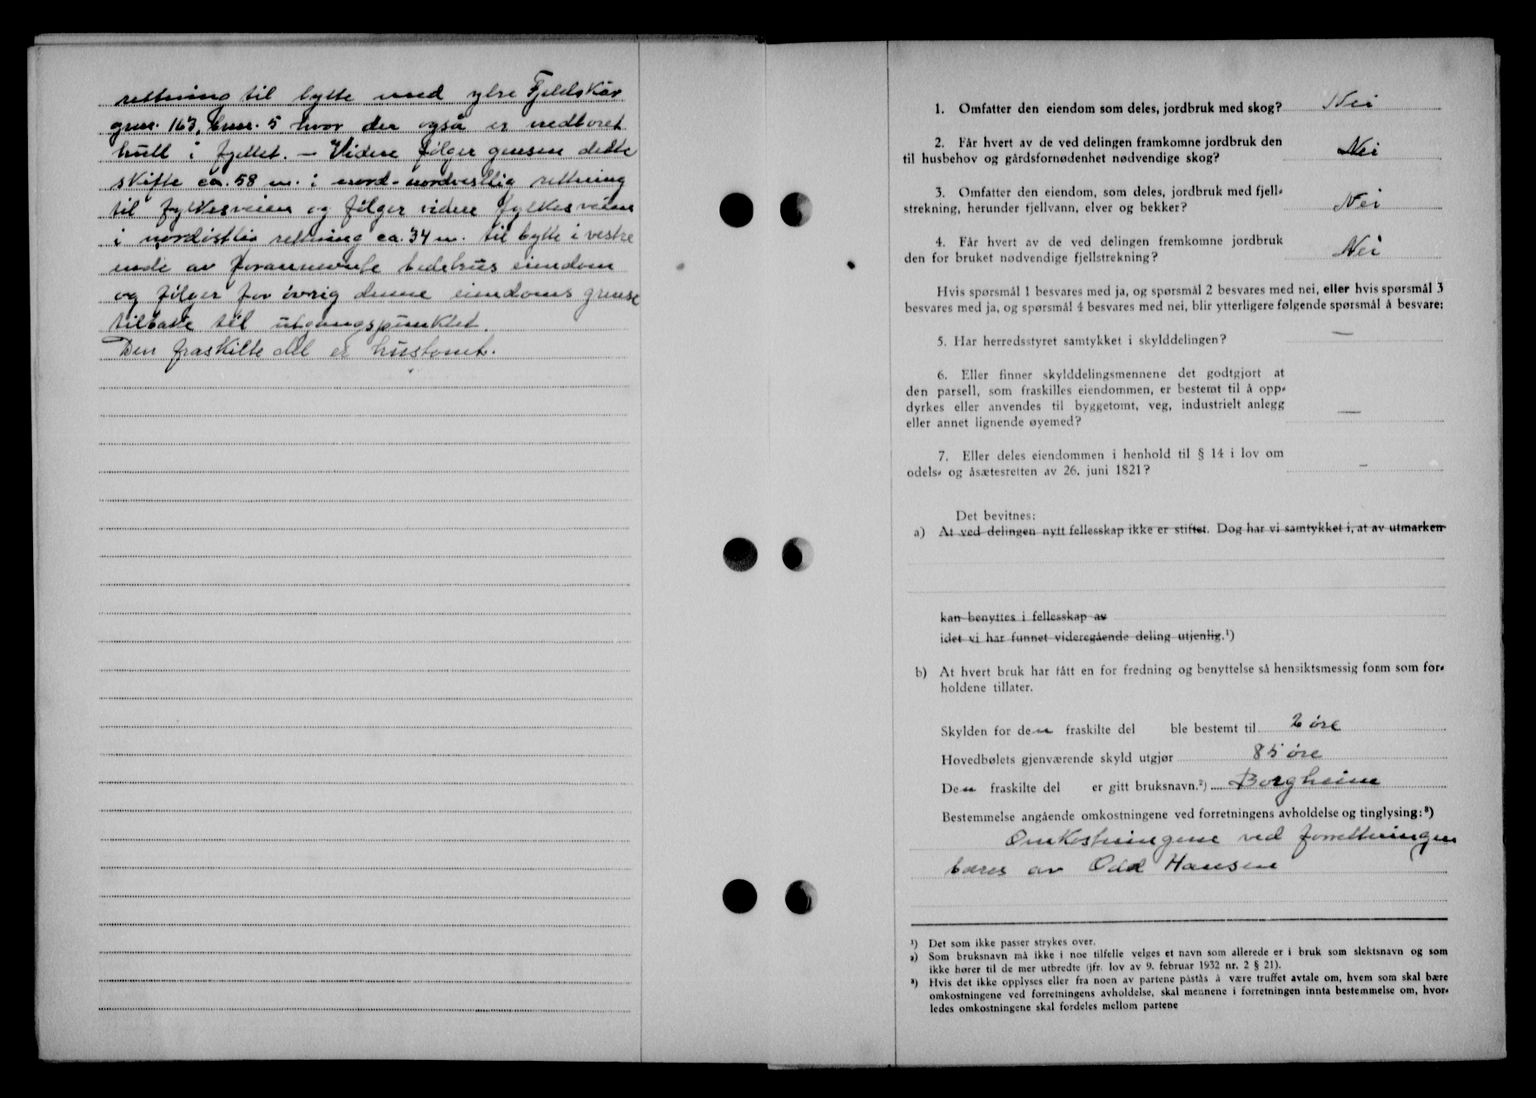 rettning til bytte med ytre Fjeldskår
gnr. 163, bnr. 5 hvor der også er nedboret
hull i fjellet. — Videre følger grensen dette
skifte ca. 58 m. i nord-nordvestlig rettning
til fylkesveien og følger videre fylkesveien
i nordøstlig rettning ca. 34 m. til bytte i vestre
ende av forannevnte bedehus eiendom
og følger for øvrig denne eiendoms grense
tilbake til utgangspunktet.
Den fraskilte del er hustomt.
1. Omfatter den eiendom som deles, jordbruk med skog? Nei
2. Får hvert av de ved delingen framkomne jordbruk den
til husbehov og gårdsfornødenhet nødvendige skog? Nei
3. Omfatter den eiendom, som deles, jordbruk med fjell-
strekning, herunder fjellvann, elver og bekker? Nei
4. Får hvert av de ved delingen fremkomne jordbruk
den for bruket nødvendige fjellstrekning? Nei
Hvis spørsmål 1 besvares med ja, og spørsmål 2 besvares med nei, eller hvis spørsmål 3
besvares med ja, og spørsmål 4 besvares med nei, blir ytterligere følgende spørsmål å besvare:
5. Har herredsstyret samtykket i skylddelingen? —
6. Eller finner skylddelingsmennene det godtgjort at
den parsell, som fraskilles eiendommen, er bestemt til å opp-
dyrkes eller anvendes til byggetomt, veg, industrielt anlegg
eller annet lignende øyemed? —
7. Eller deles eiendommen i henhold til § 14 i lov om
odels- og åsætesretten av 26. juni 1821? –
Det bevitnes:
a) At ved delingen nytt fellesskap ikke er stiftet. Dog har vi samtykket i, at av utmarken
kan benyttes i fellesskap av
idet vi har funnet videregående deling utjenlig.¹)
b) At hvert bruk har fått en for fredning og benyttelse så hensiktsmessig form som for-
holdene tillater.
Skylden for den fraskilte del ble bestemt til 2 øre
Hovedbølets gjenværende skyld utgjør 85 øre
Den fraskilte del er gitt bruksnavn.²) Borgheim
Bestemmelse angående omkostningene ved forretningens avholdelse og tinglysing:³)
Omkostningene ved forrettningen
bæres av Odd Hansen
¹) Det som ikke passer strykes over.
²) Som bruksnavn må ikke i noe tilfelle velges et navn som allerede er i bruk som slektsnavn og som
ikke hører til de mer utbredte (jfr. lov av 9. februar 1932 nr. 2 § 21).
³) Hvis det ikke opplyses eller fra noen av partene påstås å være truffet avtale om, hvem som skal bære
omkostningene ved forretningens avholdelse, skal mennene i forretningen innta bestemmelse om, hvor-
ledes omkostningene skal fordeles mellom partene